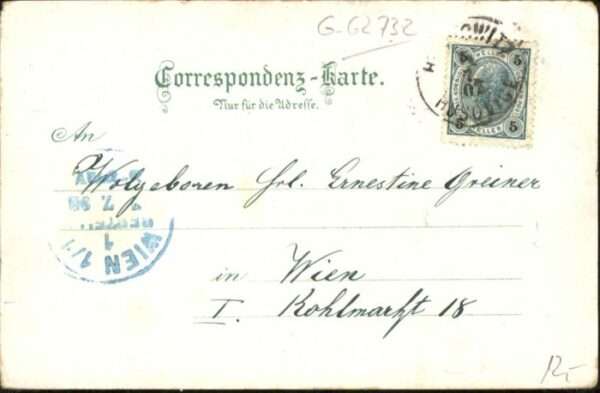 G-G2732
Correspondenz-Karte.
Nur für die Adresse.
An
Wolgeboren Frl. Ernestine Greiner
in Wien
I. Kohlmarkt 18
WIEN 1/1
1
5
5
5
5
HELLER
12,-